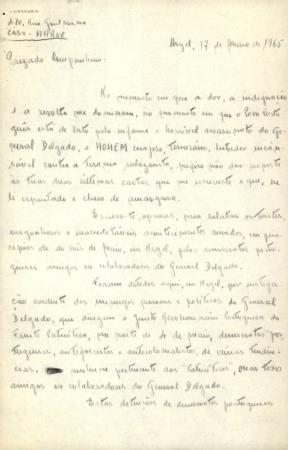 470, Rue
CASA - MAROC
Argel, 17 de Maio de 1965
Prezado Companheiro:
No momento em que a dor, a indignação
e a revolta me dominam, no momento em que o Povo Português
está de luto pelo infame e horrível assassinato do General
Delgado, o HOMEM corajoso, temerário, lutador incansável
contra a tirania salazarista, prefiro não dar resposta
às tuas duas últimas cartas que me
espantado e cheio de amargura.
Escrevo-te, apenas, para relatar os tristes,
vergonhosos e inacreditáveis acontecimentos vividos, no
de do mês de Maio, em Argel, pelos democratas portugueses
amigos ou colaboradores do General Delgado.
Foram detidos aqui, em Argel, por instigação
evidente dos inimigos pessoais e políticos do General
Delgado, que dirigem a Junta Revolucionária Portuguesa da
Frente Patriótica, na noite de 4 de maio, democratas portugueses,
antifascistas e anticolonialistas, de várias tendências,
nenhum pertencente aos "patrióticos", mas todos
amigos ou colaboradores do General Delgado.
Estas detenções de democratas portugueses